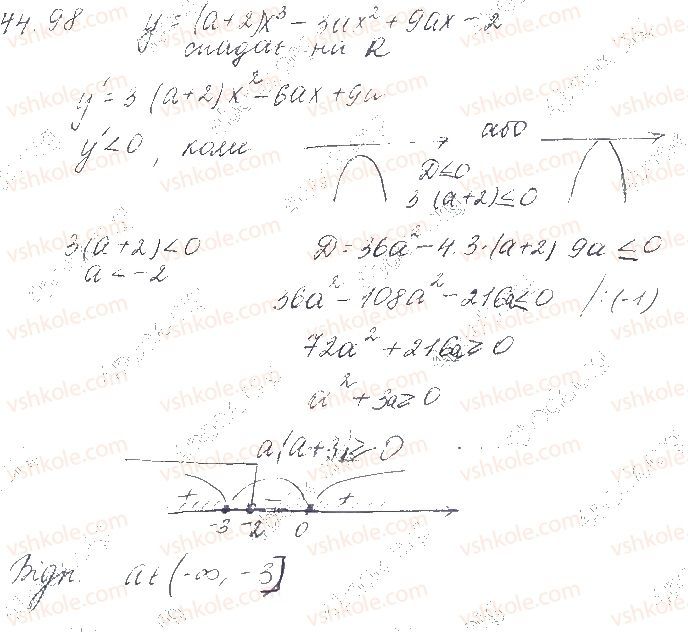 44.98 y = (a+2)x³ - 3ax² + 9ax - 2
спадає на R
y' = 3(a+2)x² - 6ax + 9a
y' < 0, коли
або
D<0
3(a+2) ≤ 0
3(a+2) < 0
a < -2
D = 36a² - 4·3·(a+2) 9a ≤ 0
36a² - 108a² - 216a ≤ 0 /·(-1)
72a² + 216a ≥ 0
a² + 3a ≥ 0
a(a+3) ≥ 0
+ - +
-3 -2 0
Відп. a∈(-∞, -3]
vshkole.com